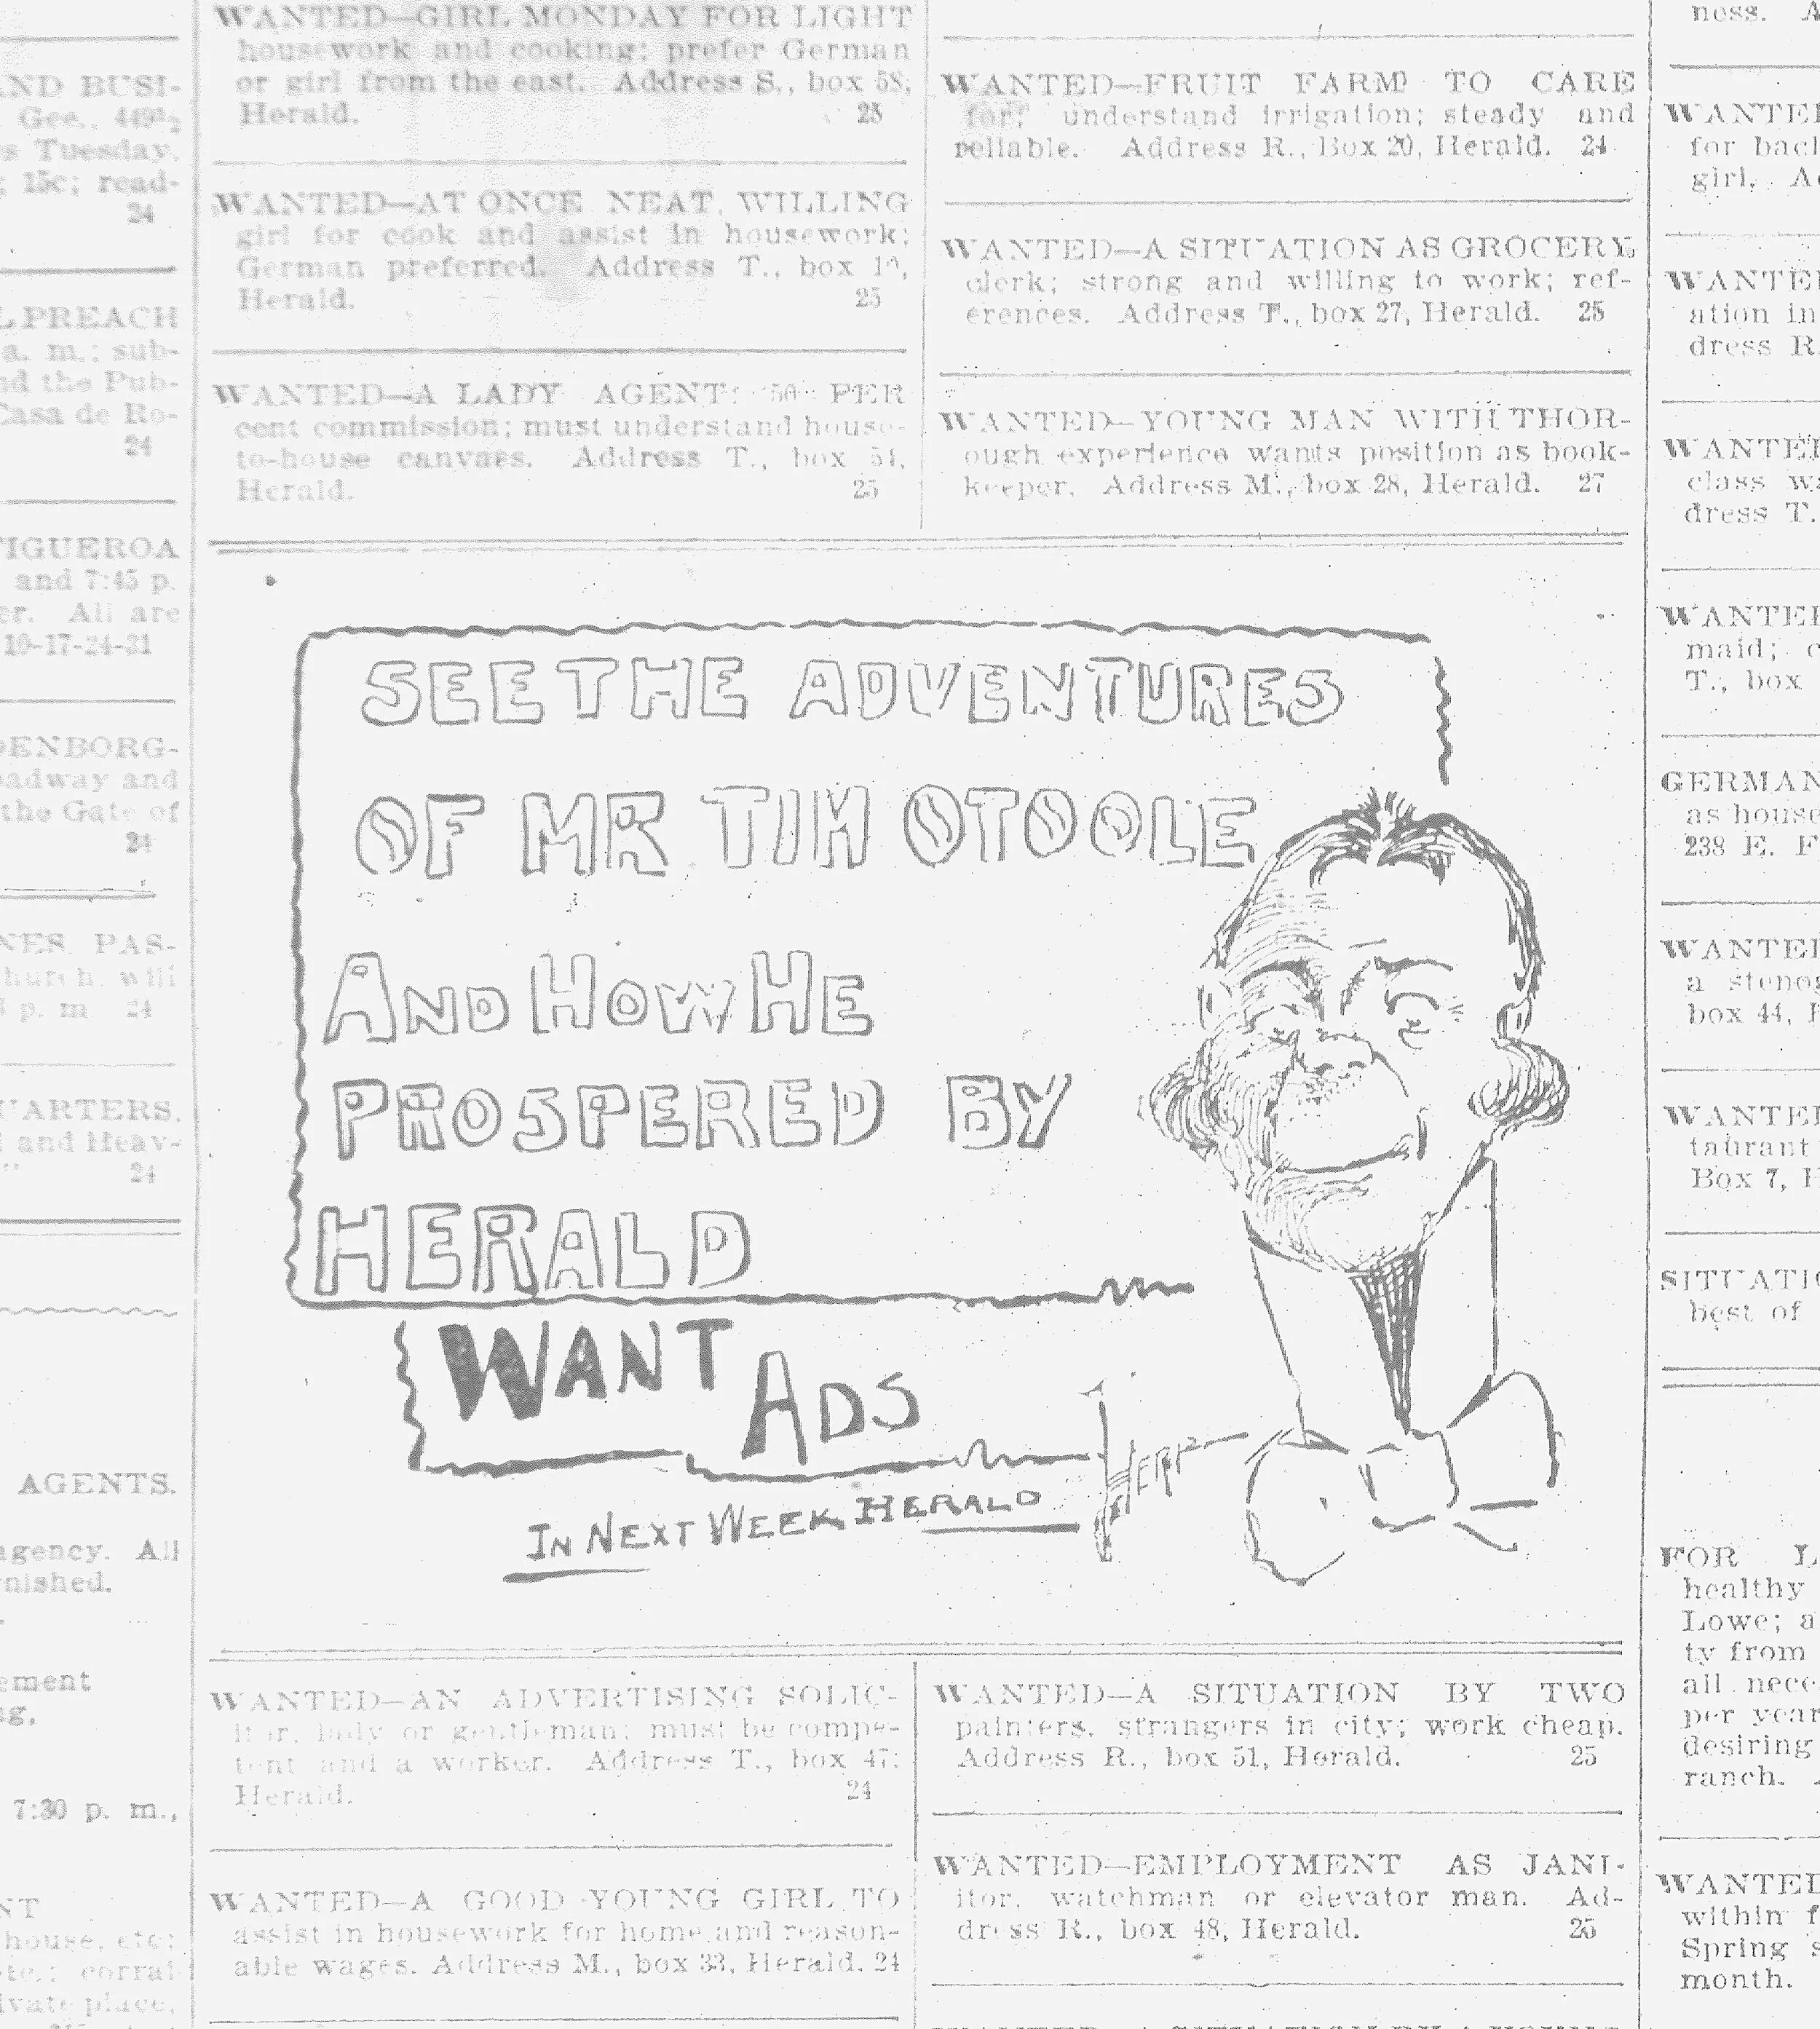 AND BUSI-
Gee., 449½
s Tuesday.
; 15c; read-
24
PREACH
a. m.; sub-
nd the Pub-
Casa de Ro-
24
FIGUEROA
and 7:45 p.
er. All are
10-17-24-31
DENBORG-
oadway and
the Gate of
24
NES, PAS-
hurch, will
p. m. 24
UARTERS,
l and Heav-
24
AGENTS.
agency. All
rnished.
ement
ng,
7:30 p. m.,
NT
house, etc;
etc.; corral
ivate place,
WANTED—GIRL MONDAY FOR LIGHT
housework and cooking; prefer German
or girl from the east. Address S., box 58,
Herald. 25
WANTED—AT ONCE NEAT, WILLING
girl for cook and assist in housework;
German preferred. Address T., box
Herald. 25
WANTED—A LADY AGENT; 50 PER
cent commission; must understand house-
to-house canvaes. Address T., box 54,
Herald. 25
WANTED—FRUIT FARM TO CARE
for; understand irrigation; steady and
reliable. Address R., Box 20, Herald. 24
WANTED—A SITUATION AS GROCERY
clerk; strong and willing to work; ref-
erences. Address T., box 27, Herald. 25
WANTED—YOUNG MAN WITH THOR-
ough experience wants position as book-
keeper. Address M., box 28, Herald. 27
SEE THE ADVENTURES
OF MR TIM OTOOLE
AND HOW HE
PROSPERED BY
HERALD
WANT
ADS
IN NEXT WEEK HERALD
WANTED—AN ADVERTISING SOLIC-
itor, lady or gentleman; must be compe-
tent and a worker. Address T., box 47,
Herald. 24
WANTED—A GOOD YOUNG GIRL TO
assist in housework for home and reason-
able wages. Address M., box 33, Herald. 24
WANTED—A SITUATION BY TWO
painters, strangers in city; work cheap.
Address R., box 51, Herald. 25
WANTED—EMPLOYMENT AS JANI-
itor, watchman or elevator man. Ad-
dress R., box 48, Herald. 25
ness. A
WANTE
for bac
girl. A
WANTE
ation in
dress R.
WANTE
class w
dress T.
WANTE
maid; c
T., box
GERMAN
as house
238 E. F
WANTE
a stenog
box 44, H
WANTE
taurant
Box 7, H
SITUATIO
best of
FOR L
healthy
Lowe; a
ty from
all nece
per year
desiring
ranch. A
WANTED
within f
Spring s
month.